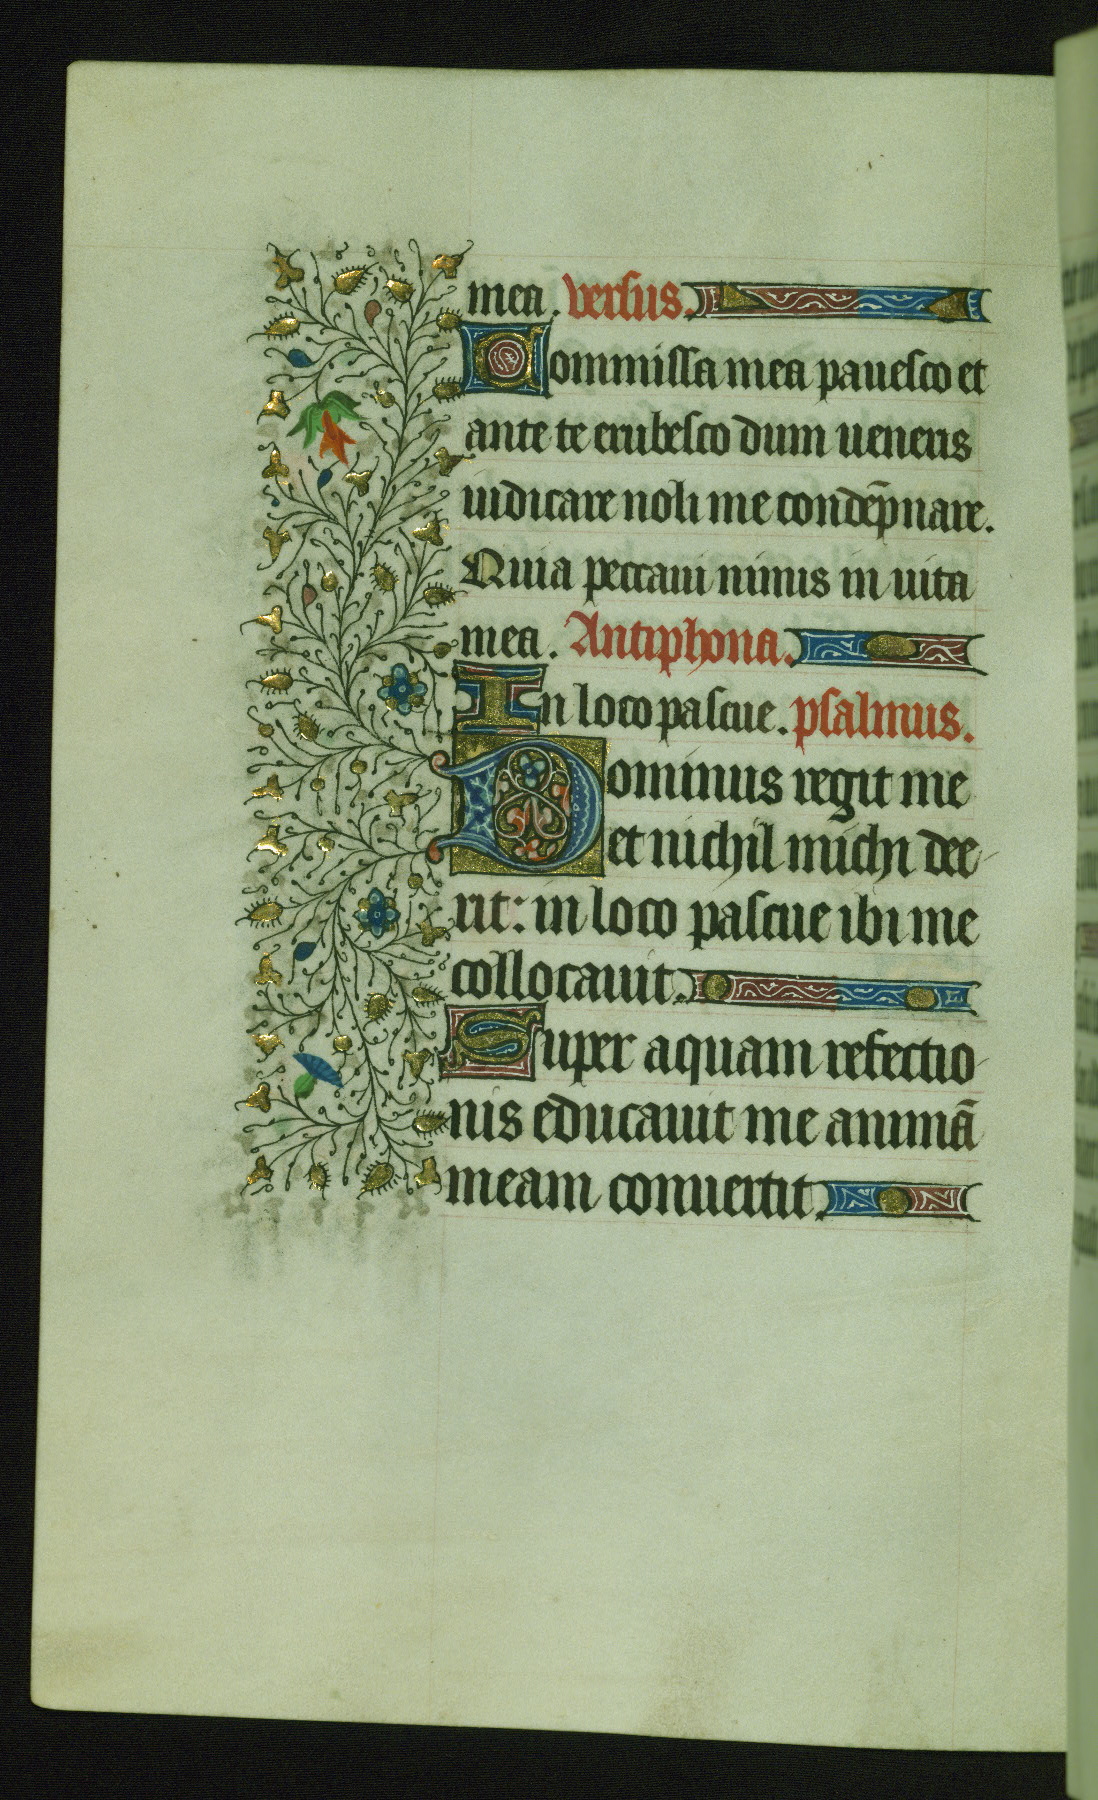 mea. versus.
Commissa mea pauesco et
ante te erubesco dum ueneris
iudicare noli me condēpnare.
Quia peccaui nimis in uita
mea. Antiphona.
In loco pascue. psalmus.
Dominus regit me
et nichil michi dee-
rit: in loco pascue ibi me
collocauit.
Super aquam refectio-
nis educauit me animā
meam conuertit.